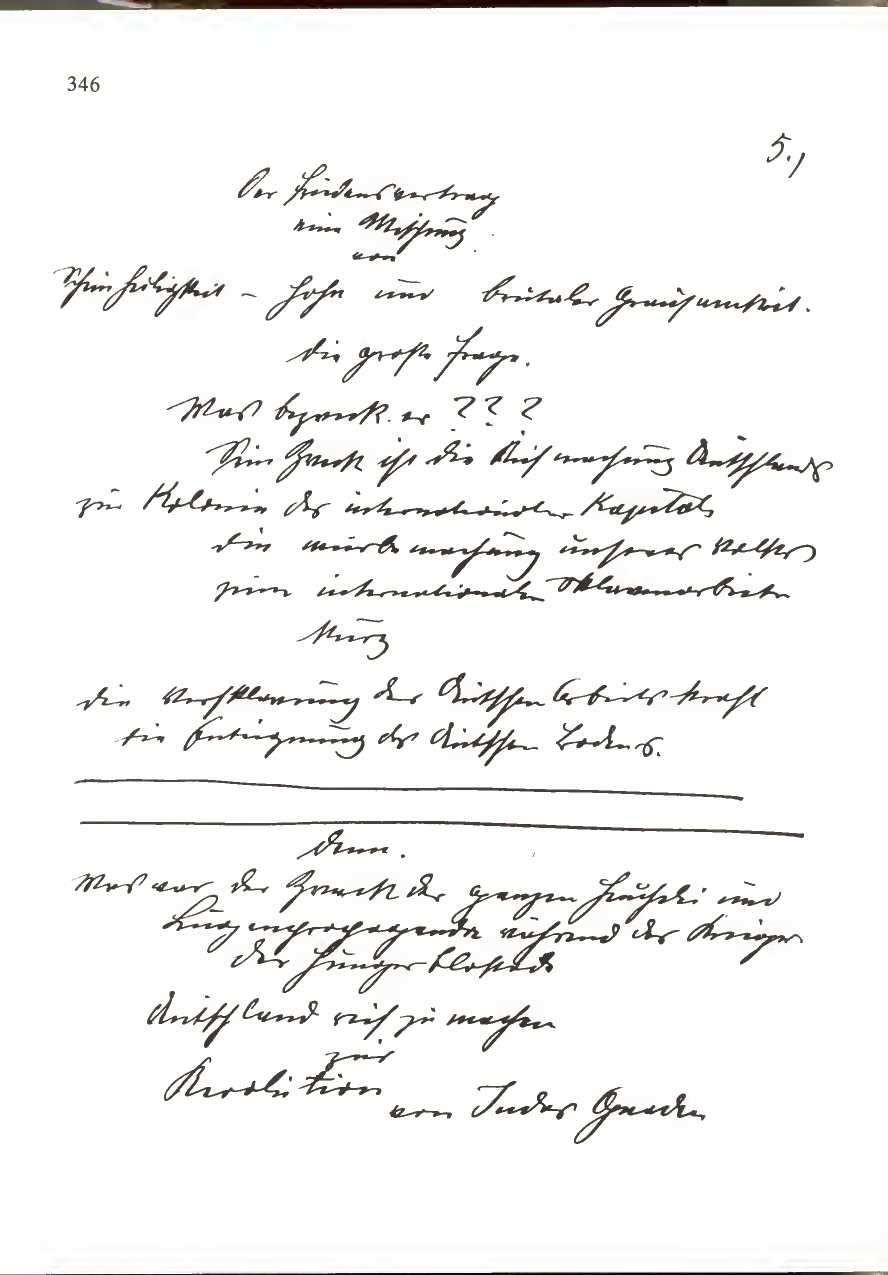 346
5.)
Der Friedensvertrag
eine Mischung
von
Scheinheiligkeit – Hohn und brutaler Grausamkeit.
die große Frage.
Was bezweckt er ???
Sein Zweck ist die Reifmachung Deutschlands
zur Kolonie des internationalen Kapitals
die mürbe machung unseres Volkes
zum internationalen Sklavenarbeiter
Kurz
die Versklavung der deutschen Arbeitskraft
die Enteignung des deutschen Bodens.
denn.
Was war der Zweck der ganzen und
Lügenpropaganda während des Krieges
der Hungerblokade
Deutschland reif zu machen
zur
Revolution
von Judas Gnaden